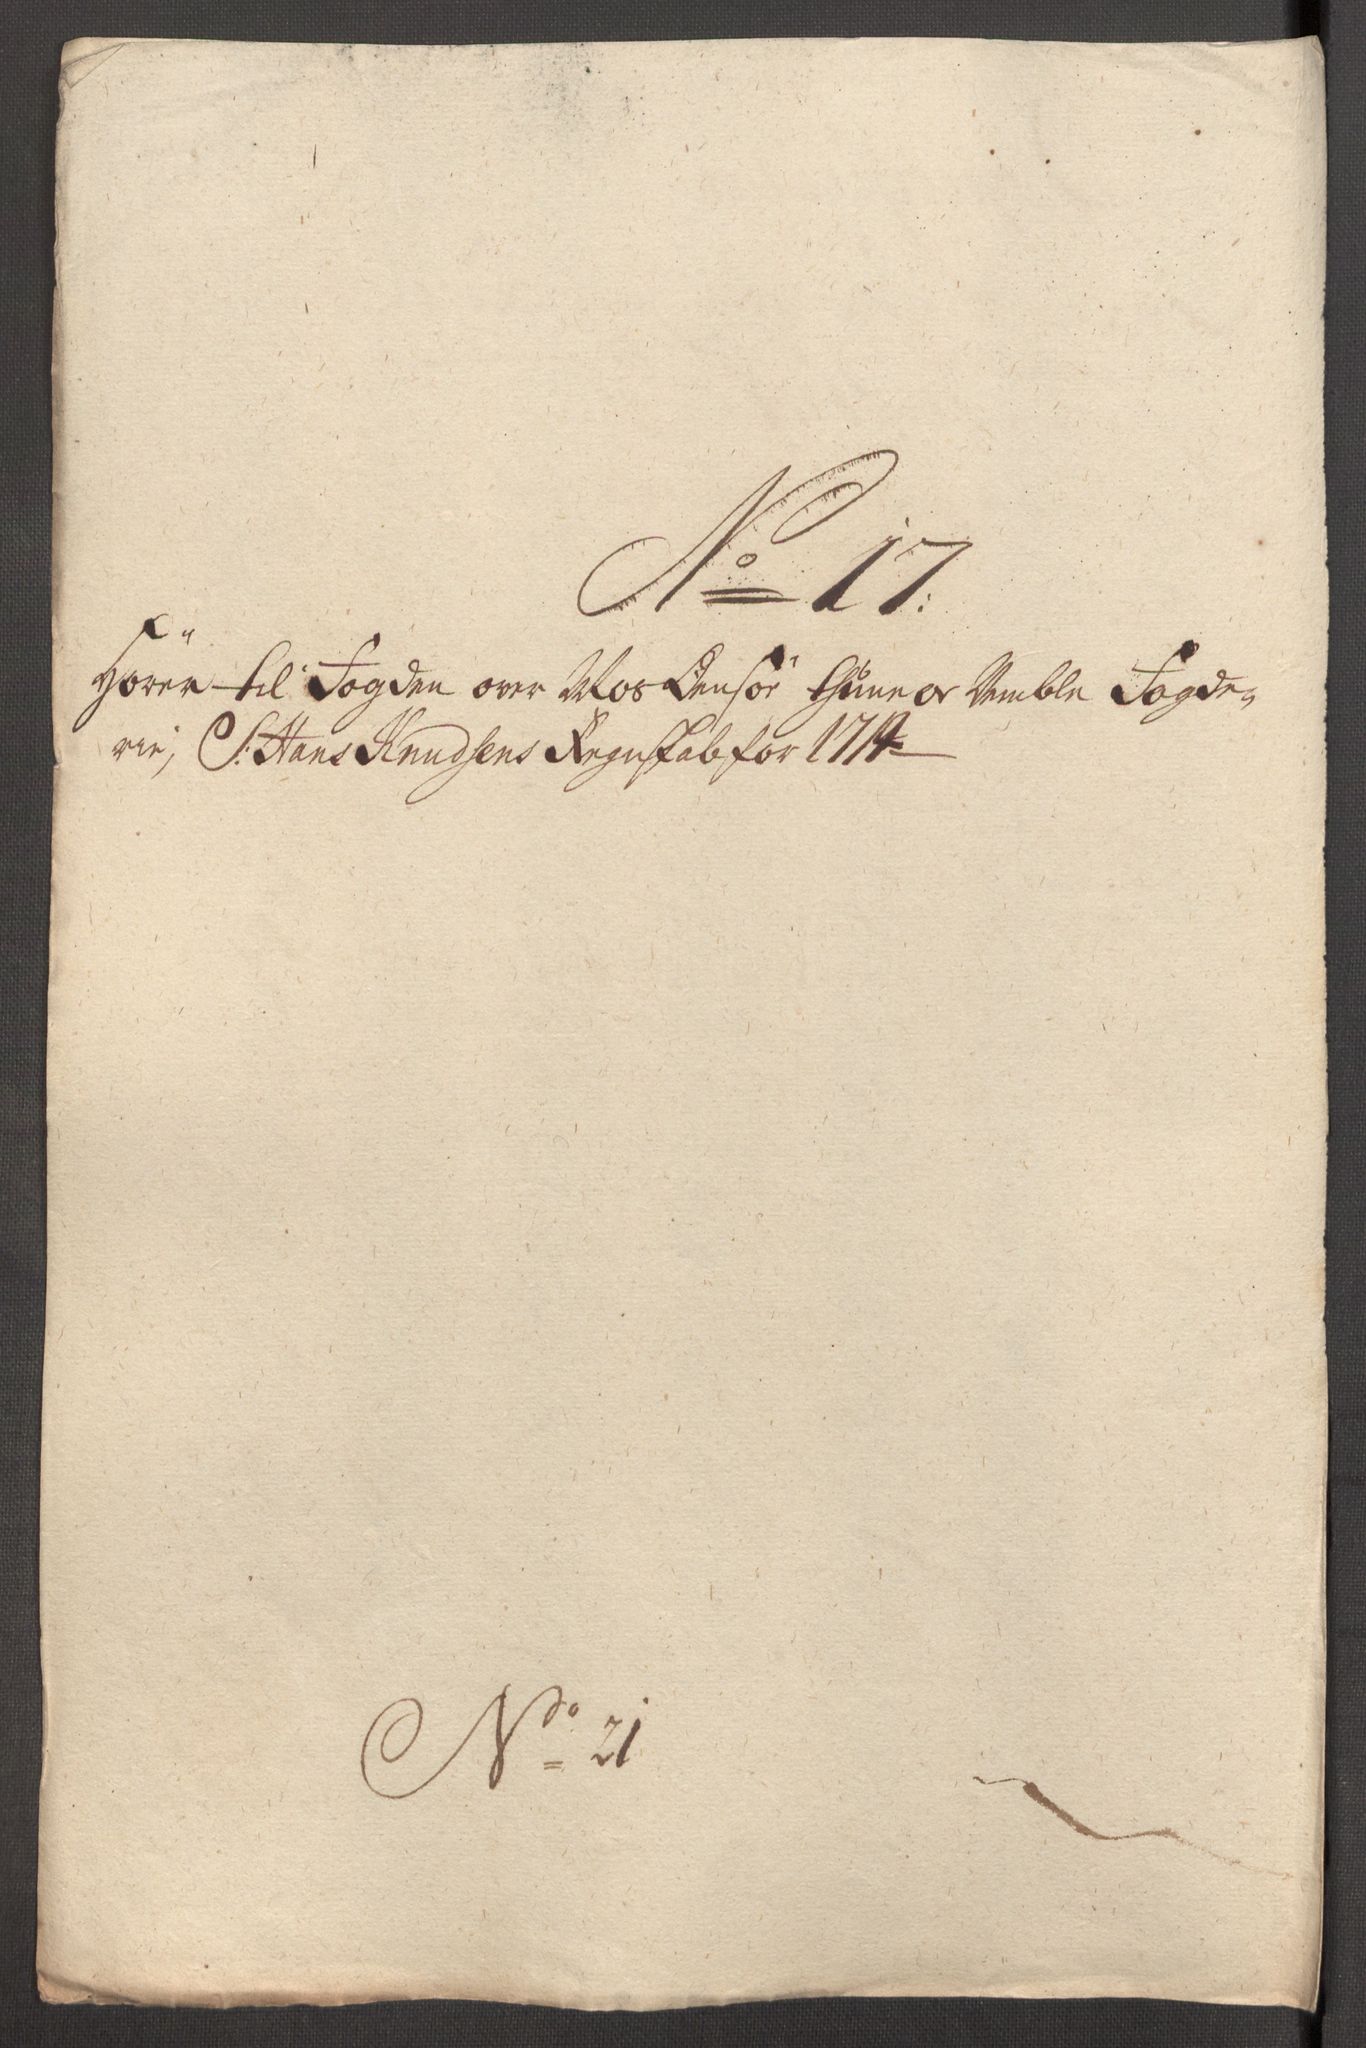 No 17:
Hörer til Fogden over Mos Ounsöe Thune or Vemble Fogde-
rie, S: Hans Knudsens Regnskab for 1714
No 21